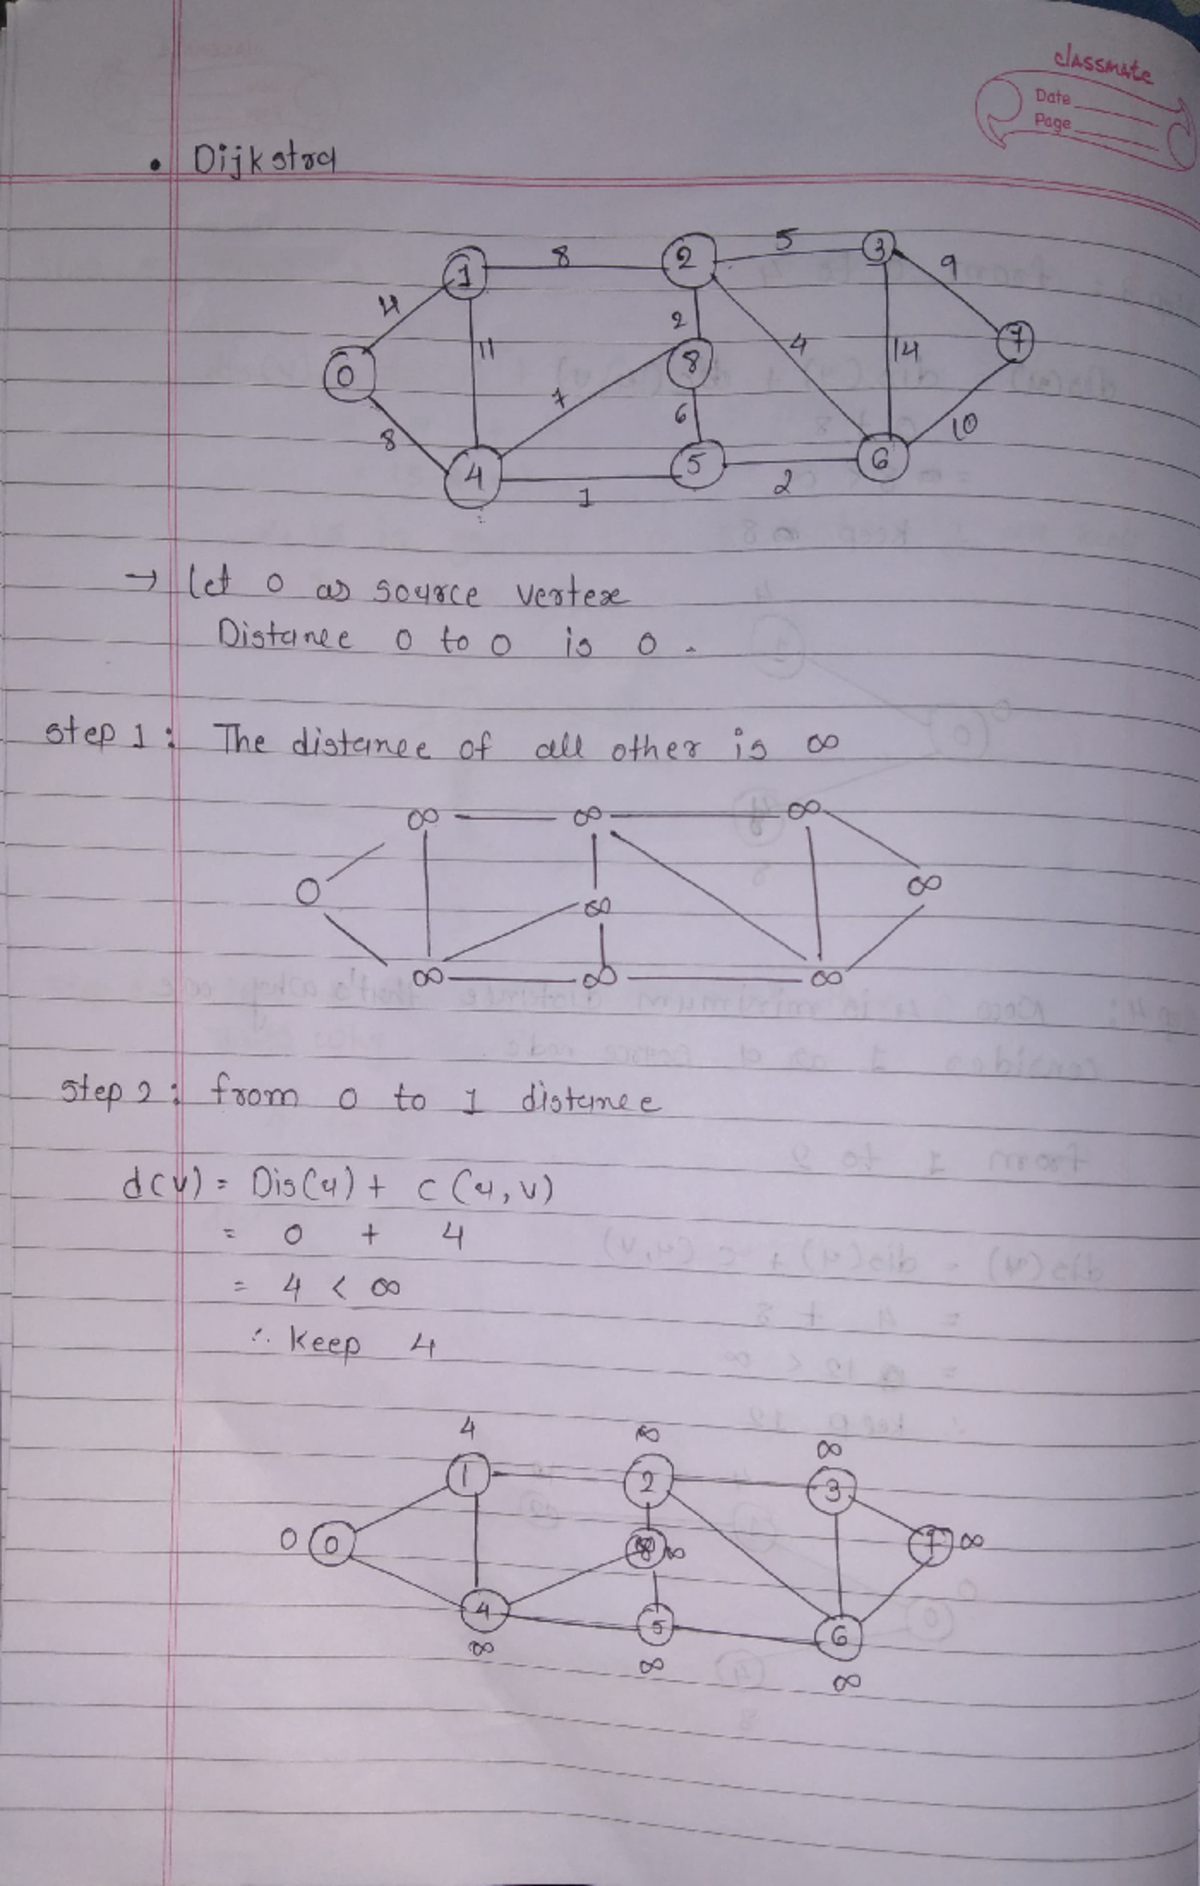 classmate
Date
Page
• Dijkstra
1 8 2 5 3 9
4 11 2 4 14 7
0 7 8
8 6 10
4 1 5 2 6
→ Let 0 as source vertex
Distance 0 to 0 is 0.
Step 1: The distance of all other is ∞
∞ ∞ ∞
0 ∞ ∞
∞ ∞ ∞
Step 2: from 0 to 1 distance
d(v) = Dis(u) + c (u, v)
= 0 + 4
= 4 < ∞
∴ keep 4
4 ∞ ∞
1 2 3
0 0 8 ∞ 7 ∞
4 5 6
∞ ∞ ∞